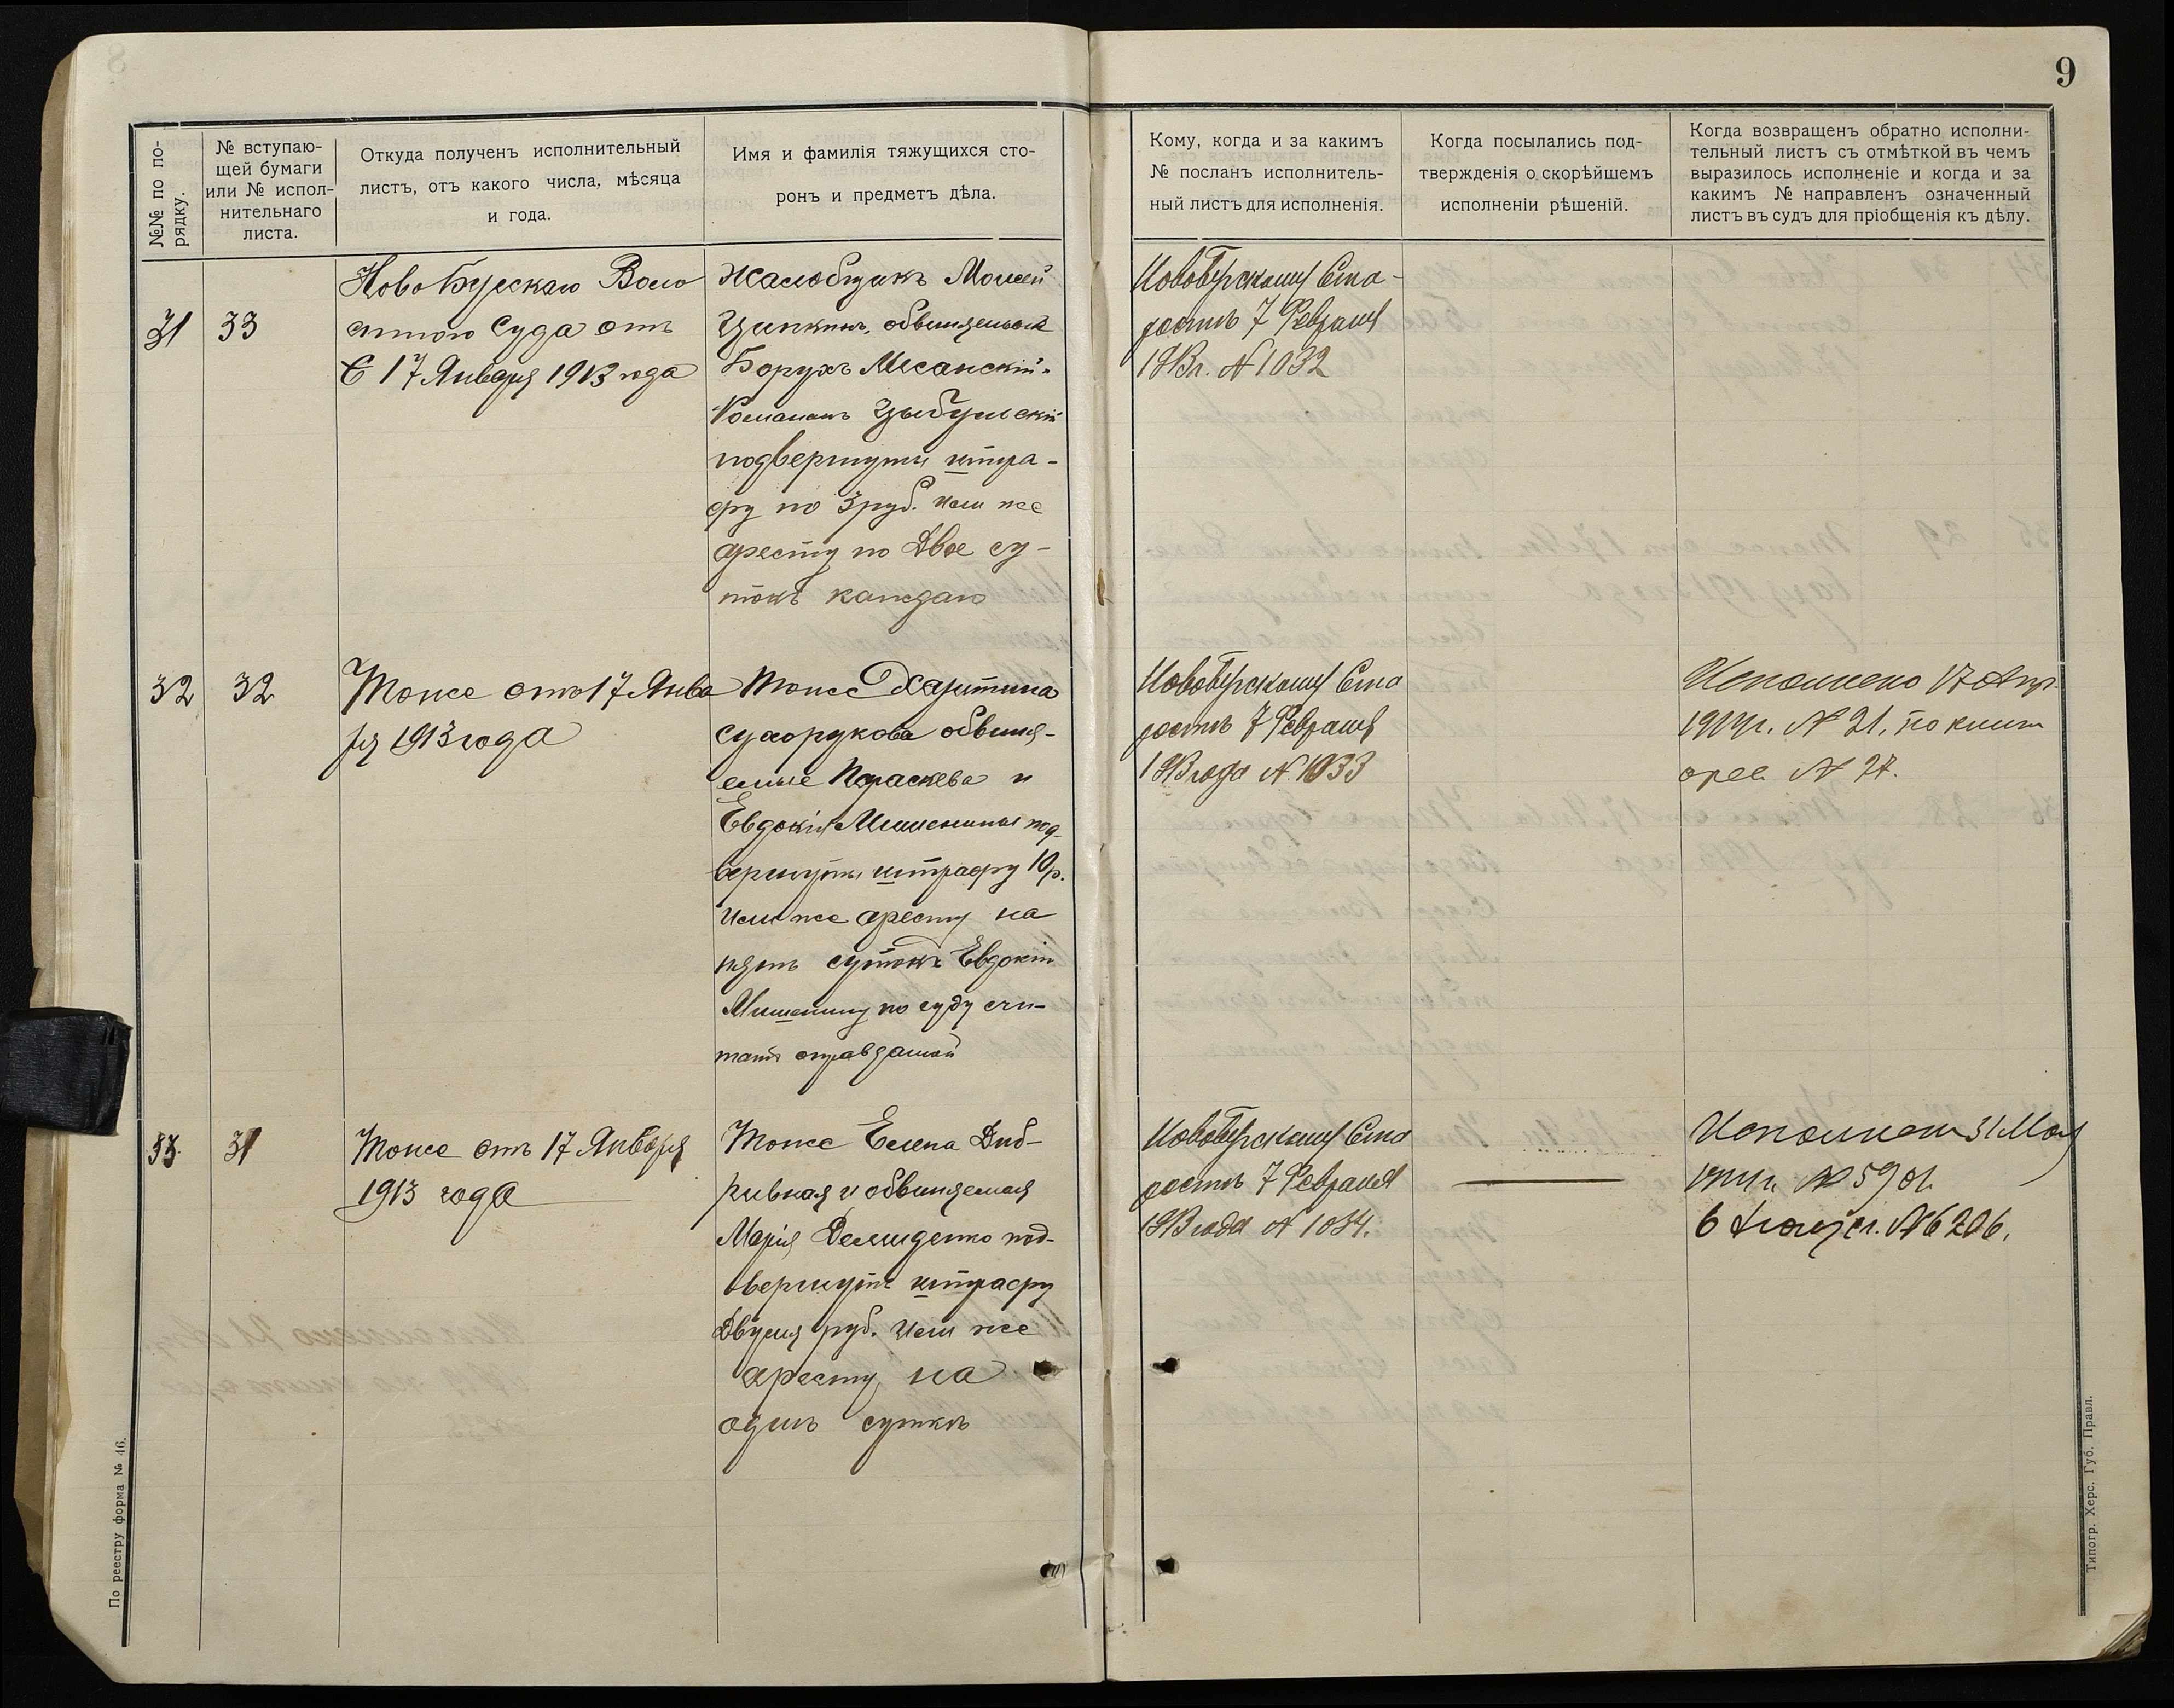 9
№№ по по-
рядку.
№ вступаю-
щей бумаги
или № испол-
нительнаго
листа.
Откуда полученъ исполнительный
листъ, отъ какого числа, мѣсяца
и года.
Имя и фамилія тяжущихся сто-
ронъ и предметъ дѣла.
Кому, когда и за какимъ
№ посланъ исполнитель-
ный листъ для исполненія.
Когда посылались под-
твержденія о скорѣйшемъ
исполненіи рѣшеній.
Когда возвращенъ обратно исполни-
тельный листъ съ отмѣткой въ чемъ
выразилось исполненіе и когда и за
какимъ № направленъ означенный
листъ въ судъ для пріобщенія къ дѣлу.
31
33
Ново Бугскаго Воло
стного Суда отъ
17 Января 1913 года
Жалобщикъ Моисей
Ципкинъ, обвиняемые
Борухъ
Цыбульскій
подвергнуты штра-
фу по 3 руб. или же
аресту по двое су-
токъ каждаго
Новобугскому Ста-
ростѣ 7 Февраля
1913 г. № 1032
32
32
Тоже отъ 17 Янва
ря 1913 года
Тоже Харитина
Сухорукова обвиня-
емые Параскева и
Евдокія Мишенины под-
вергнуты штрафу 10 р.
или же аресту на
пять сутокъ Евдокію
Мишенину по суду счи-
тать оправданной
Новобугскому Ста
ростѣ 7 Февраля
1913 года № 1033
Исполнено 17 Апр.
1914 г. № 21, по книг
арес. № 27.
33.
31
Тоже отъ 17 Января
1913 года
Тоже Елена Диб-
ривная и обвиняемая
Марія Демиденко под-
вергнута штрафу
двумя руб. или же
аресту на
одни сутки
Новобугскому Ста
ростѣ 7 Февраля
1913 года № 1034.
Исполнен 31 Мая
1914 г. № 5901.
6 № 6206.
По реестру форма № 46.
Типогр. Херс. Губ. Правл.